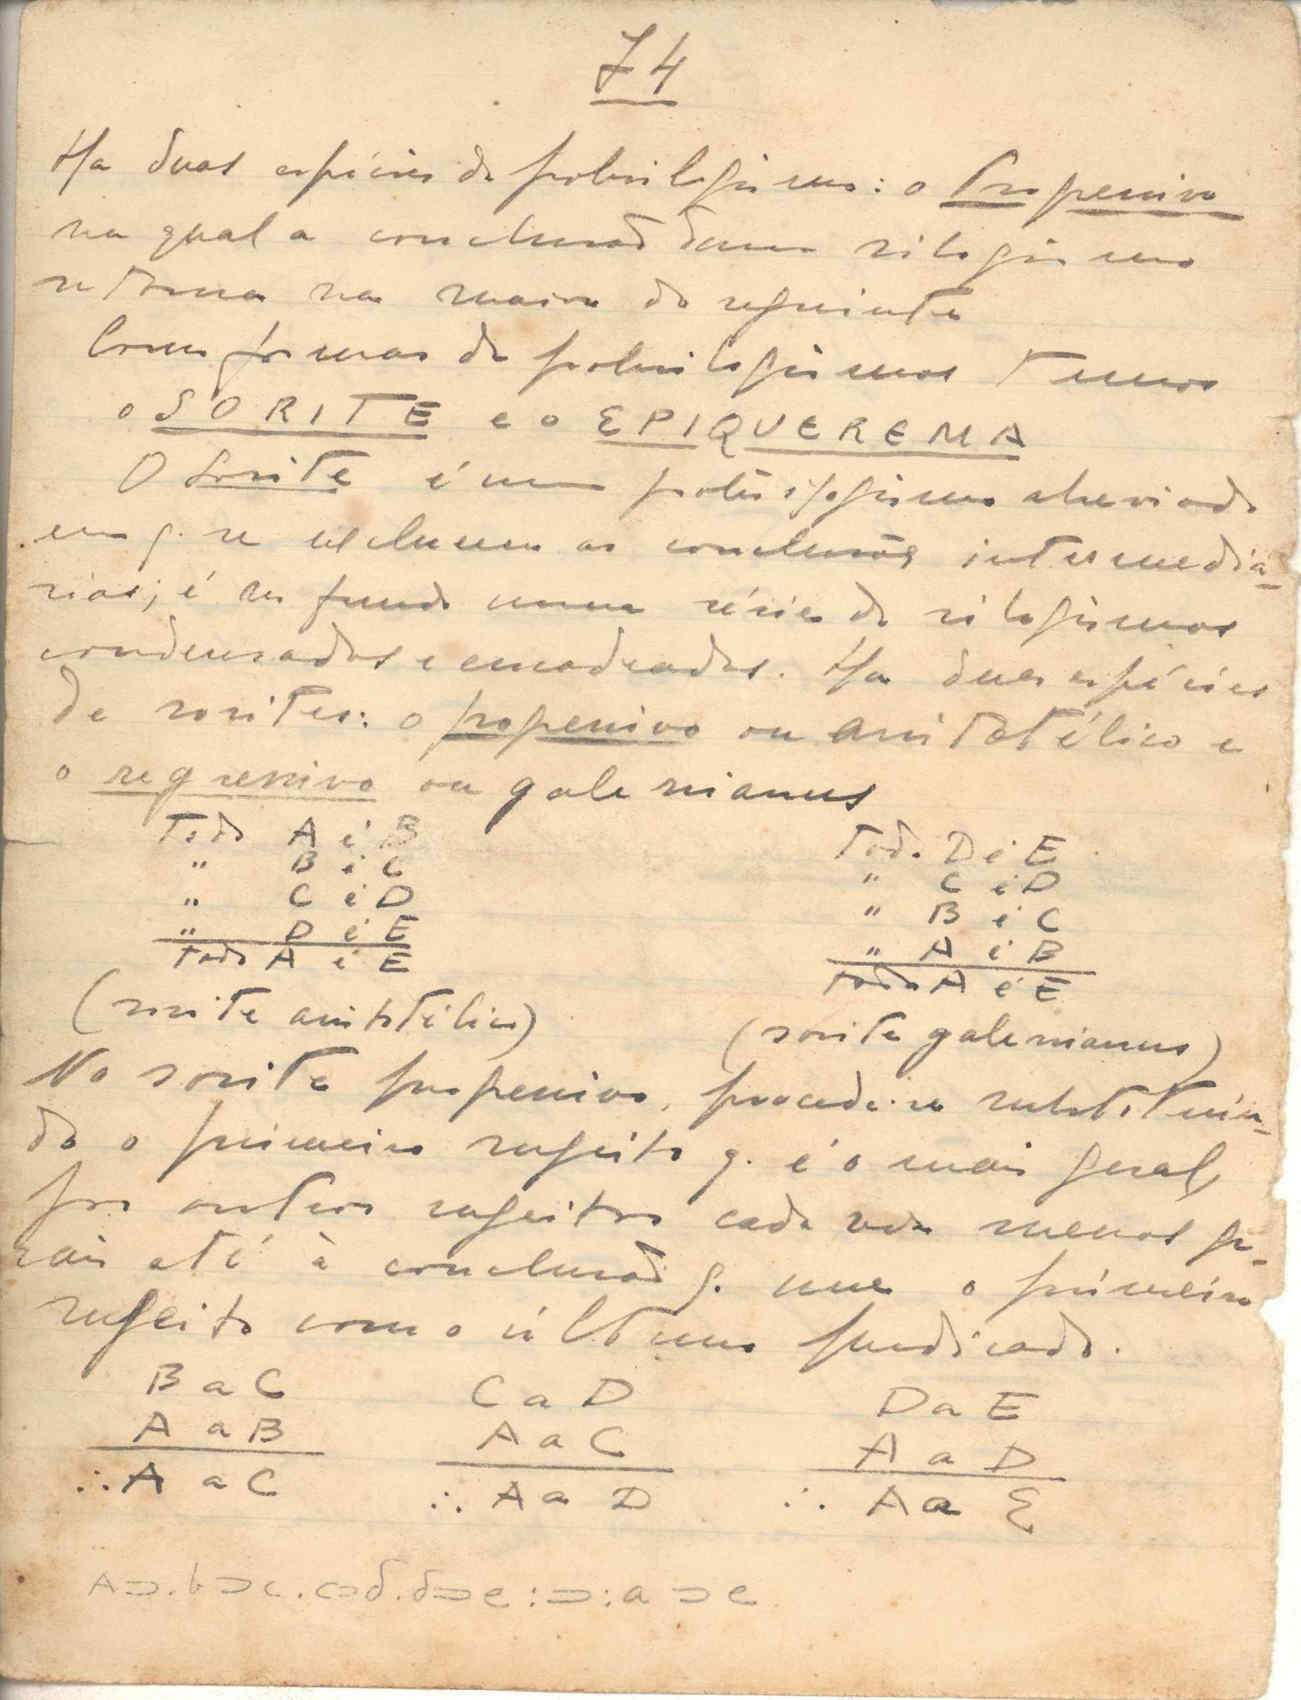 74
Ha duas espécies de polisilogismo: o Progressivo
na qual a conclusão dum silogismo
se torna na maior do seguinte
Como formas de polisilogismos temos
o SORITE e o EPIQUEREMA
O Sorite é um polisilogismo abreviado
em q. se excluem as conclusões intermediá-
rias; é no fundo uma série de silogismos
condensados e encadeados. Ha duas espécies
de sorites: o progressivo ou aristotélico e
o regressivo ou galenianus
Todo A é B
" B é C
" C é D
" D é E
Todo A é E
(sorite aristotélico)
Todo D é E
" C é D
" B é C
" A é B
Todo A é E
(sorite galenianus)
No sorite progressivo, procede-se substituin-
do o primeiro sujeito q. é o mais geral,
por outros sujeitos cada vez menos ge-
rais até à conclusão q. une o primeiro
sujeito com o último predicado.
B a C C a D D a E
A a B A a C A a D
∴ A a C ∴ A a D ∴ A a E
A⊃.b⊃c.c⊃d.d⊃e:⊃:a⊃e